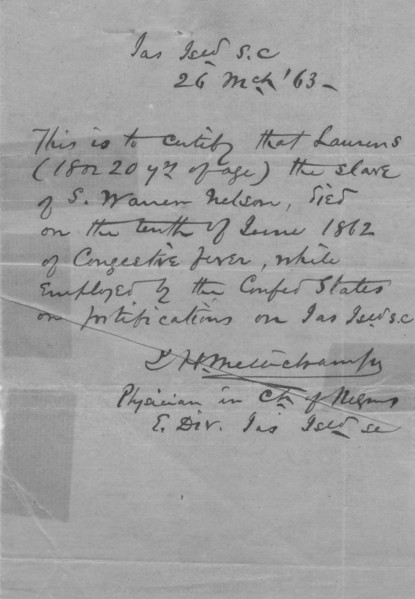 Jas Isld S.C
26 Mch '63 -
This is to certify that Laurens
(18 or 20 yrs of age) the slave
of S. Warren Nelson, died
on the tenth of June 1862
of Congestive fever, while
employed by the Confed States
on fortifications on Jas Isld S.C
Mellichamp
Physician in Ch of Negros
E. Div. Jas Isld SC